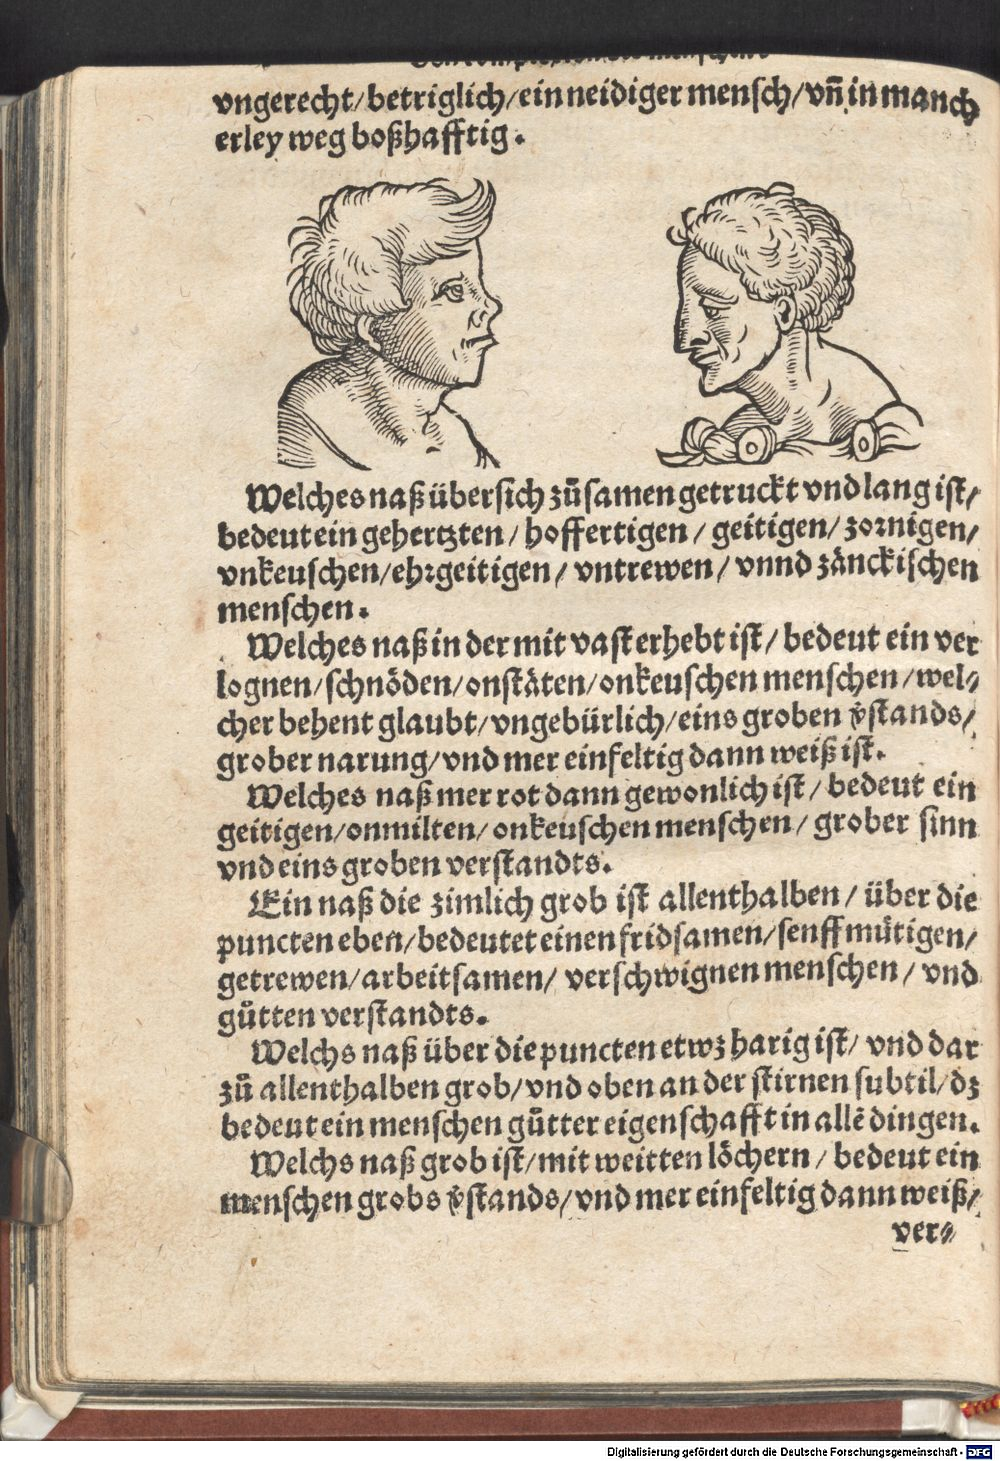 vngerecht/betriglich/ein neidiger mensch/vñ in manch
erley weg boßhafftig.
Welches naß übersich zůsamen getruckt vnd lang ist/
bedeut ein gehertzten/hoffertigen/geitigen/zornigen/
vnkeuschen/ehrgeitigen/vntrewen/vnnd zänckischen
menschen.
Welches naß in der mit vast erhebt ist/bedeut ein ver
lognen/schnöden/onstäten/onkeuschen menschen/wel⸗
cher behent glaubt/vngebürlich/eins groben v̄stands/
grober narung/vnd mer einfeltig dann weiß ist.
Welches naß mer rot dann gewonlich ist/bedeut ein
geitigen/onmilten/onkeuschen menschen/grober sinn
vnd eins groben verstandts.
Ein naß die zimlich grob ist allenthalben/über die
puncten eben/bedeutet einen fridsamen/senffmütigen/
getrewen/arbeitsamen/verschwignen menschen/vnd
gůtten verstandts.
Welchs naß über die puncten etwz harig ist/vnd dar
zů allenthalben grob/vnd oben an der stirnen subtil/dz
bedeut ein menschen gůtter eigenschafft in allē dingen.
Welchs naß grob ist/mit weitten löchern/bedeut ein
menschen grobs v̄stands/vnd mer einfeltig dann weiß/
ver⸗
Digitalisierung gefördert durch die Deutsche Forschungsgemeinschaft - DFG